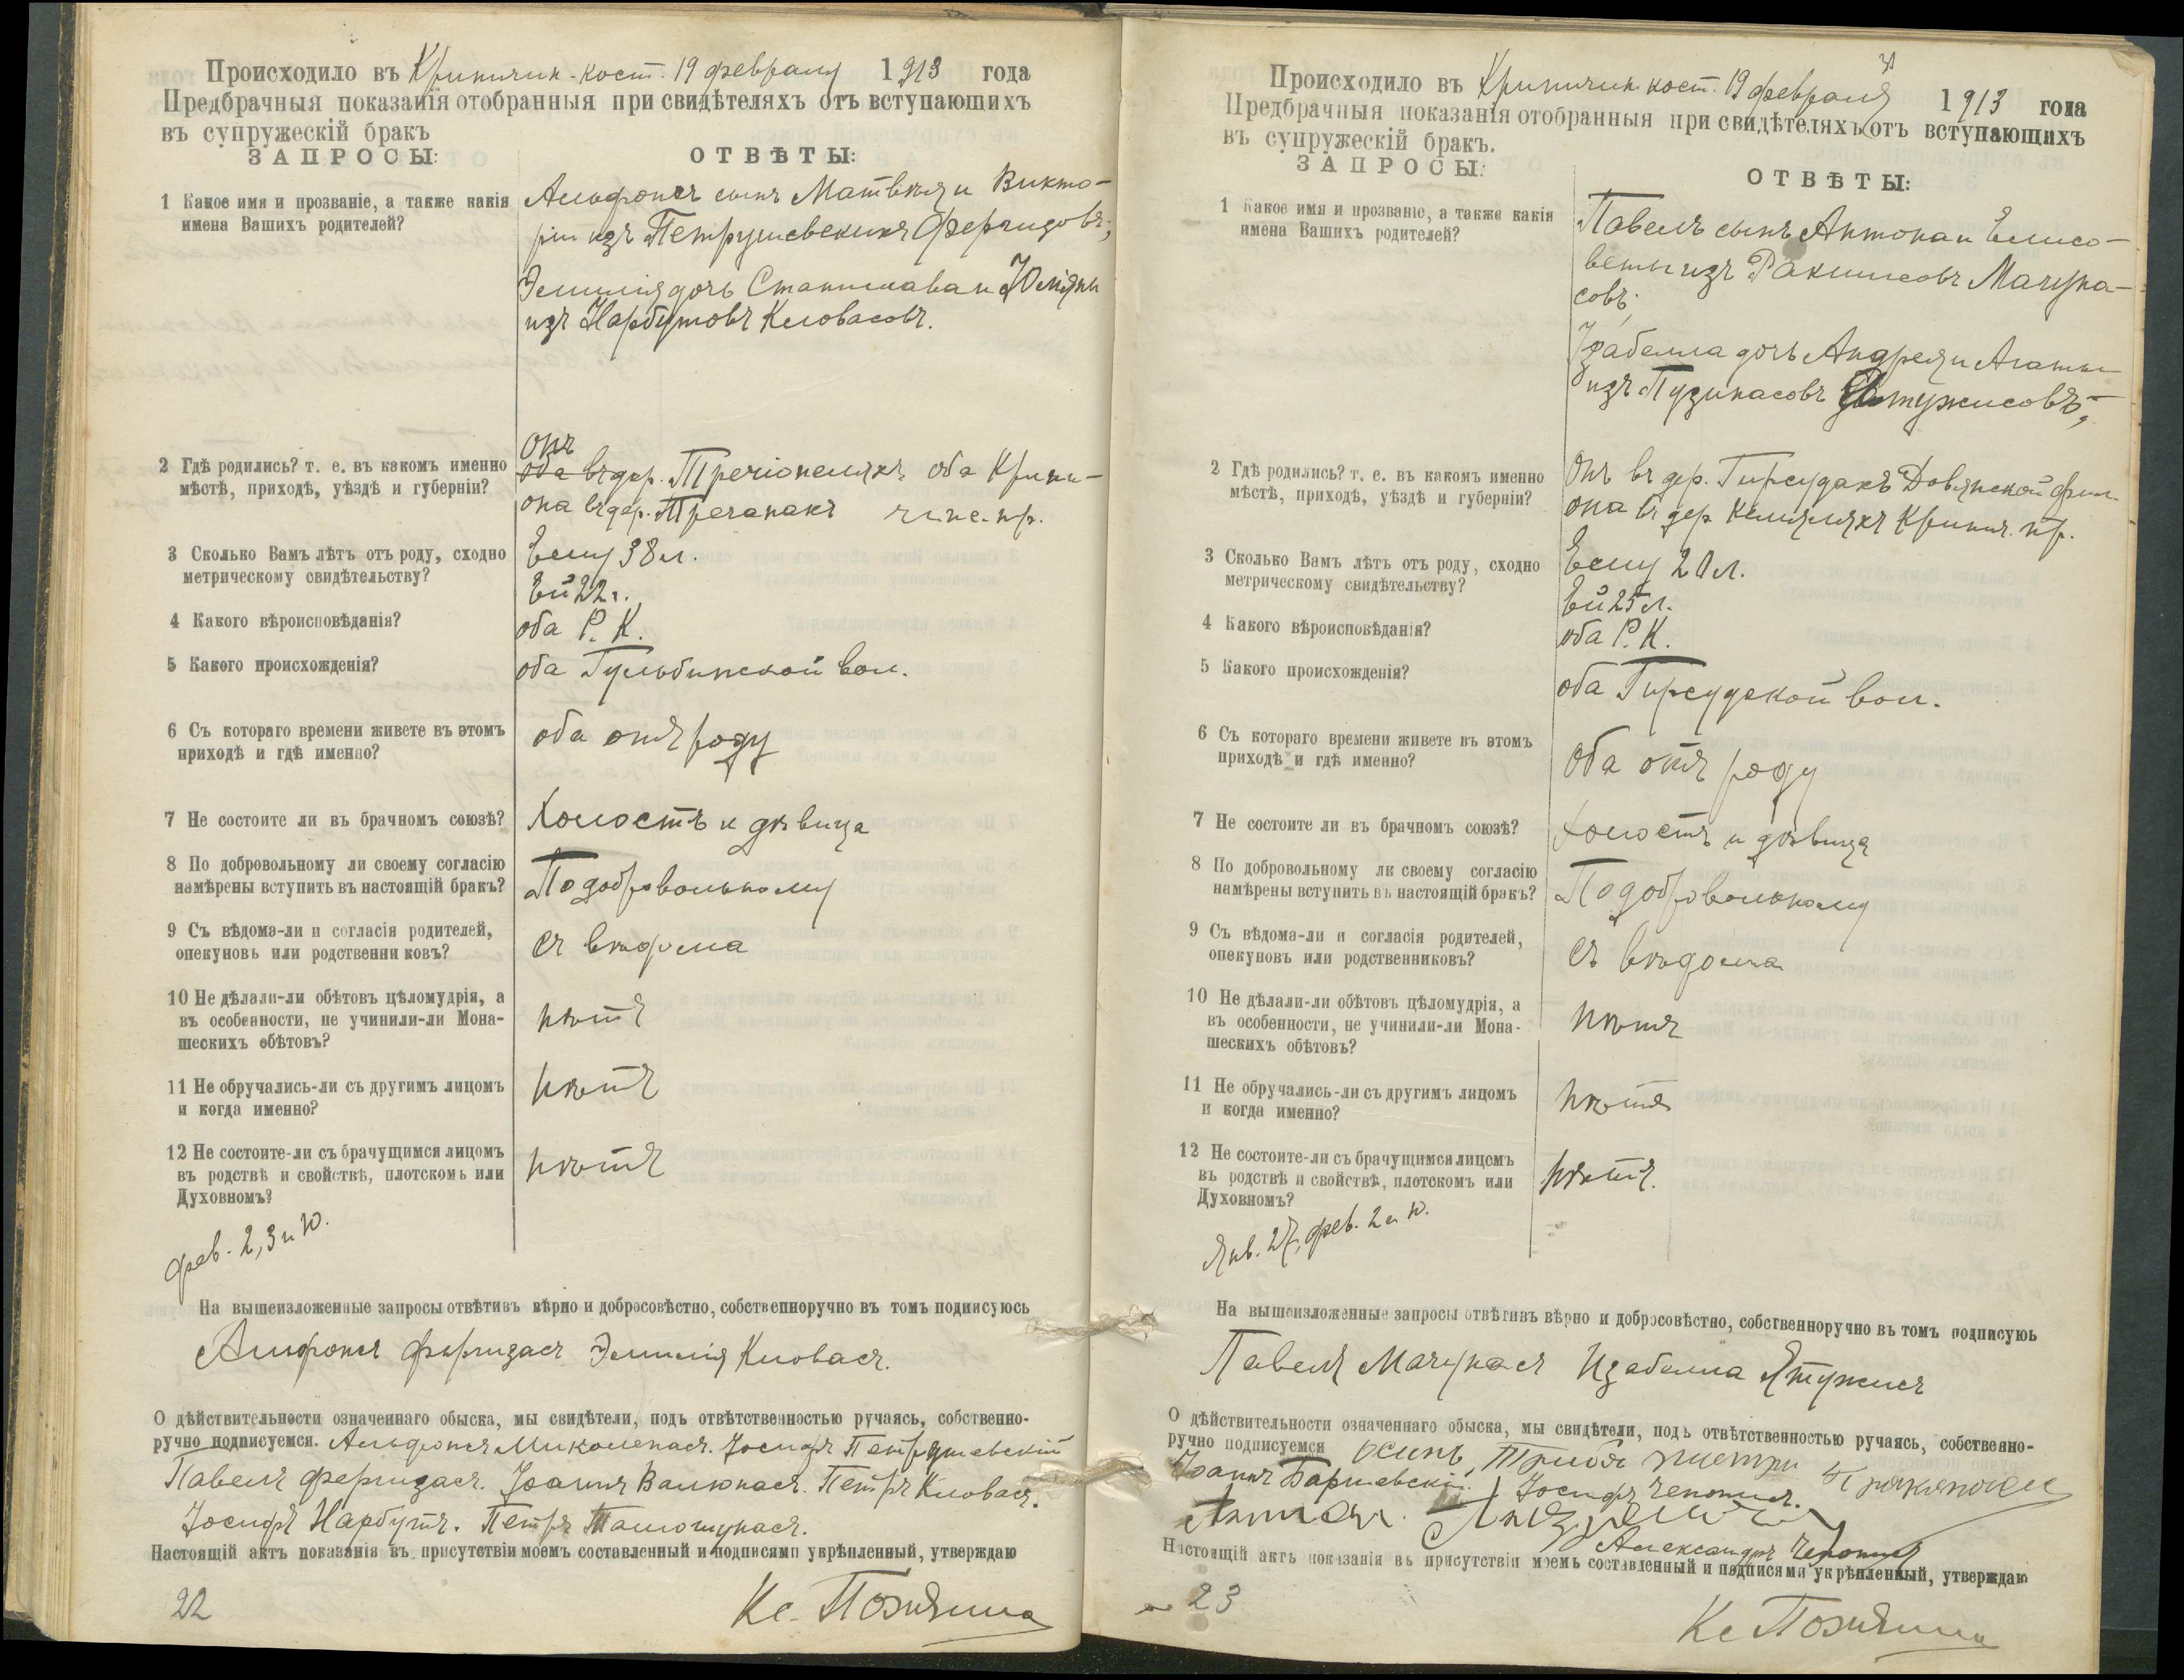 Происходило въ Крипчин-кост. 19 февраля 1913 года
Предбрачныя показанія отобранныя при свидѣтеляхъ отъ вступающихъ
въ супружескій бракъ
ЗАПРОСЫ:
ОТВѢТЫ:
1 Какое имя и прозваніе, а также какія
имена Вашихъ родителей?
Альфонсъ сынъ Матвѣя и Викто-
ріи изъ Петрушевскихъ Фергизовъ;
Эмилія дочь Станислава и Юліяны
изъ Нарбутовъ Кловасовъ.
2 Гдѣ родились? т. е. въ какомъ именно
мѣстѣ, приходѣ, уѣздѣ и губерніи?
Онъ
оба въ дер. Тречіонеляхъ оба Крипи-
она въ дер. Тречанахъ чинс. пр.
3 Сколько Вамъ лѣтъ отъ роду, сходно
метрическому свидѣтельству?
Ему 38 л.
Ей 22 г.
4 Какого вѣроисповѣданія?
оба Р. К.
5 Какого происхожденія?
оба Гульбинской вол.
6 Съ котораго времени живете въ этомъ
приходѣ и гдѣ именно?
оба отъ роду
7 Не состоите ли въ брачномъ союзѣ?
Холостъ и дѣвица
8 По добровольному ли своему согласію
намѣрены вступить въ настоящій бракъ?
По добровольному
9 Съ вѣдома-ли и согласія родителей,
опекуновъ или родственни ковъ?
съ вѣдома
10 Не дѣлали-ли обѣтовъ цѣломудрія, а
въ особенности, не учинили-ли Мона-
шескихъ обѣтовъ?
нѣтъ
11 Не обручались-ли съ другимъ лицомъ
и когда именно?
нѣтъ
12 Не состоите-ли съ брачущимся лицомъ
въ родствѣ и свойствѣ, плотскомъ или
Духовномъ?
нѣтъ
фев. 2, 3 и 10.
На вышеизложенные запросы отвѣтивъ вѣрно и добросовѣстно, собственноручно въ томъ подписуюсь
Альфонсъ Фергизасъ Эмилія Кловасъ.
О дѣйствительности означеннаго обыска, мы свидѣтели, подъ отвѣтственностью ручаясь, собственно-
ручно подписуемся. Альфонсъ Миколенасъ. Іосифъ Петрушевскій
Павелъ Фергизасъ. Іоаннъ Валюнасъ. Петръ Кловасъ.
Іосифъ Нарбутъ. Петръ
Настоящій актъ показанія въ присутствіи моемъ составленный и подписями укрѣпленный, утверждаю
22
Кс.
Происходило въ Крипчин кост. 19 февраля 1913 года
Предбрачныя показанія отобранныя при свидѣтеляхъ отъ вступающихъ
въ супружескій бракъ.
ЗАПРОСЫ:
ОТВѢТЫ:
1 Какое имя и прозваніе, а также какія
имена Вашихъ родителей?
Павелъ сынъ Антона и Елисо-
веты изъ Ракишсовъ Мачуна-
совъ;
Изабелла дочь Андрея и Агаты
изъ Пузинасовъ Ятужисовъ;
2 Гдѣ родились? т. е. въ какомъ именно
мѣстѣ, приходѣ, уѣздѣ и губерніи?
Онъ въ дер. Гирсудахъ Довянской фил.
она въ дер. Кемляляхъ Крипч. пр.
3 Сколько Вамъ лѣтъ отъ роду, сходно
метрическому свидѣтельству?
Ему 20 л.
Ей 25 л.
4 Какого вѣроисповѣданія?
оба Р. К.
5 Какого происхожденія?
оба Гирсудской вол.
6 Съ котораго времени живете въ этомъ
приходѣ и гдѣ именно?
оба отъ роду
7 Не состоите ли въ брачномъ союзѣ?
холостъ и дѣвица
8 По добровольному ли своему согласію
намѣрены вступить въ настоящій бракъ?
По добровольному
9 Съ вѣдома-ли и согласія родителей,
опекуновъ или родственниковъ?
съ вѣдома
10 Не дѣлали-ли обѣтовъ цѣломудрія, а
въ особенности, не учинили-ли Мона-
шескихъ обѣтовъ?
нѣтъ
11 Не обручались-ли съ другимъ лицомъ
и когда именно?
нѣтъ
12 Не состоите-ли съ брачущимся лицомъ
въ родствѣ и свойствѣ, плотскомъ или
Духовномъ?
нѣтъ.
Янв. 27, фев. 2 и 10.
На вышеизложенные запросы отвѣтивъ вѣрно и добросовѣстно, собственноручно въ томъ подписуюь
Павелъ Мачунасъ Изабелла Ятужисъ
О дѣйствительности означеннаго обыска, мы свидѣтели, подъ отвѣтственностью ручаясь, собственно-
ручно подписуемся
Іоаннъ Баршевскій. Іосифъ Чепонисъ.
Александръ Чепонисъ
Настоящій актъ показанія въ присутствіи моемъ составленный и подписями укрѣпленный, утверждаю
23
Кс